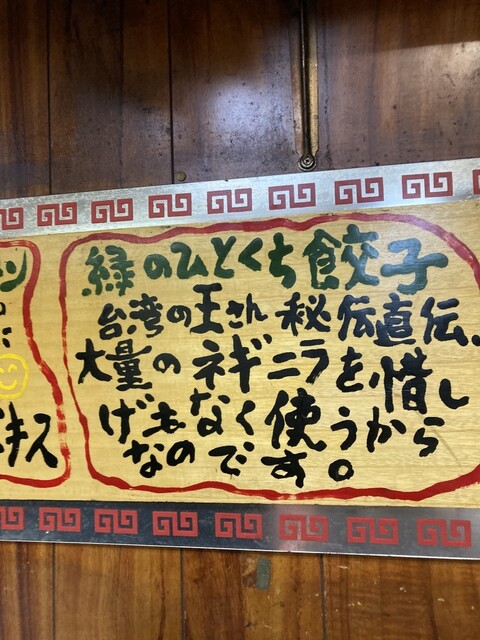 緑のひとくち餃子
台湾の王さん秘伝直伝、
大量のネギニラを惜し
げもなく使うから
なのです。
キス